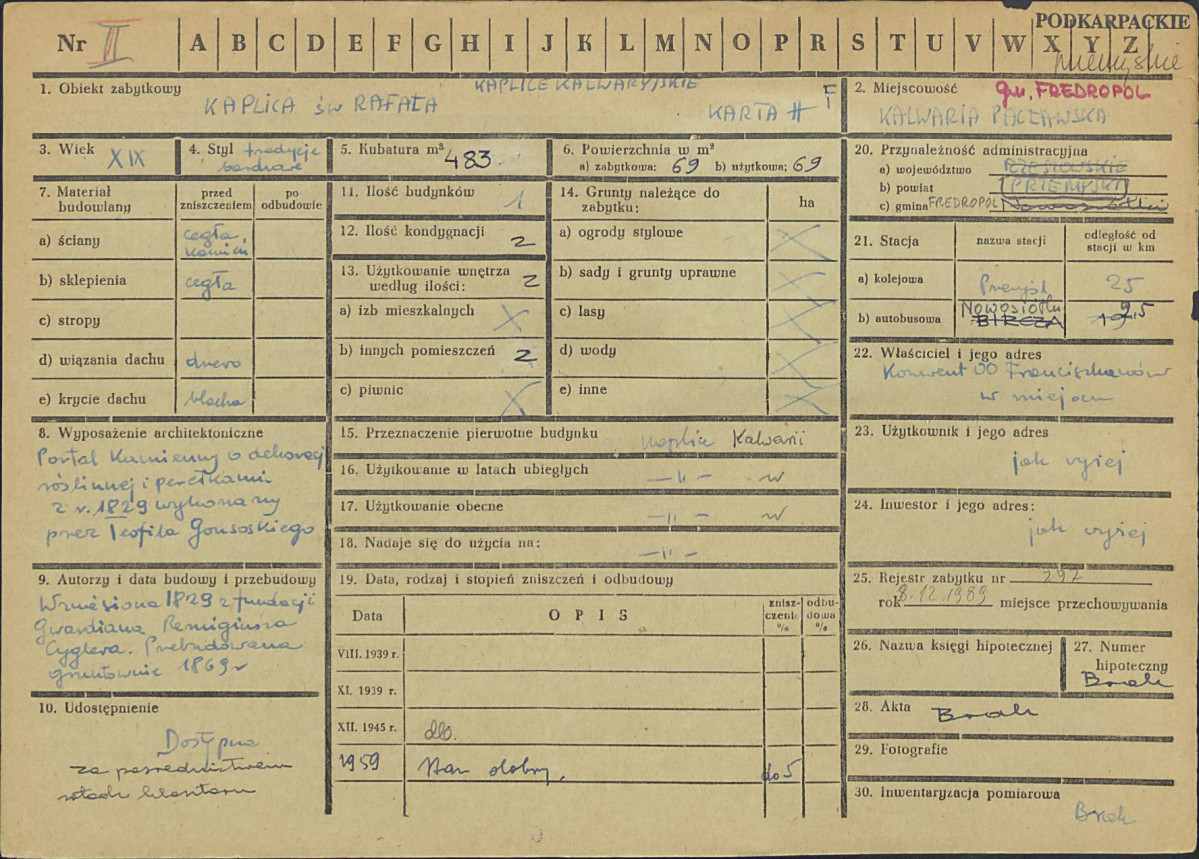 PODKARPACKIE
Nr II A B C D E F G H I J K L M N O P R S T U V W X Y Z
przemyskie
1. Obiekt zabytkowy
KAPLICE KALWARYJSKIE
KAPLICA św RAFAŁA
KARTA # F
2. Miejscowość
gm. FREDROPOL
KALWARIA PACŁAWSKA
3. Wiek XIX
4. Styl tradycje barokowe
5. Kubatura m³ 483
6. Powierzchnia w m²
a) zabytkowa: 69 b) użytkowa: 69
7. Materiał budowlany
przed zniszczeniem
po odbudowie
a) ściany cegła, kamień
b) sklepienia cegła
c) stropy
d) wiązania dachu drewno
e) krycie dachu blacha
8. Wyposażenie architektoniczne
Portal kamienny o dekoracji
roślinnej i perełkami
z r. 1829 wykonany
przez Teofila
9. Autorzy i data budowy i przebudowy
Wzniesiona 1829 z fundacji
Gwardiana Remigiusza
Cyglera. Przebudowana
gruntownie 1869 r
10. Udostępnienie
Dostępna
za pośrednictwem
11. Ilość budynków 1
12. Ilość kondygnacji 2
13. Użytkowanie wnętrza
według ilości: 2
a) izb mieszkalnych X
b) innych pomieszczeń 2
c) piwnic X
14. Grunty należące do
zabytku: ha
a) ogrody stylowe X
b) sady i grunty uprawne X
c) lasy X
d) wody X
e) inne X
15. Przeznaczenie pierwotne budynku kaplica Kalwarii
16. Użytkowanie w latach ubiegłych —"—
17. Użytkowanie obecne —"—
18. Nadaje się do użycia na: —"—
19. Data, rodzaj i stopień zniszczeń i odbudowy
Data
OPIS
zniszczenie %
odbudowa %
VIII. 1939 r.
XI. 1939 r.
XII. 1945 r.
1959 stan dobry. do 5
20. Przynależność administracyjna
a) województwo RZESZOWSKIE
b) powiat PRZEMYSKI
c) gmina FREDROPOL
21. Stacja
nazwa stacji
odległość od
stacji w km
a) kolejowa Przemyśl 25
b) autobusowa Nowosiółki 2,5
BIRCZA 19
22. Właściciel i jego adres
Konwent OO Franciszkanów
w miejscu
23. Użytkownik i jego adres
jak wyżej
24. Inwestor i jego adres:
jak wyżej
25. Rejestr zabytku nr 292
rok 8.12.1989 miejsce przechowywania
26. Nazwa księgi hipotecznej
27. Numer
hipoteczny
Brak
28. Akta Brak
29. Fotografie
30. Inwentaryzacja pomiarowa
Brak